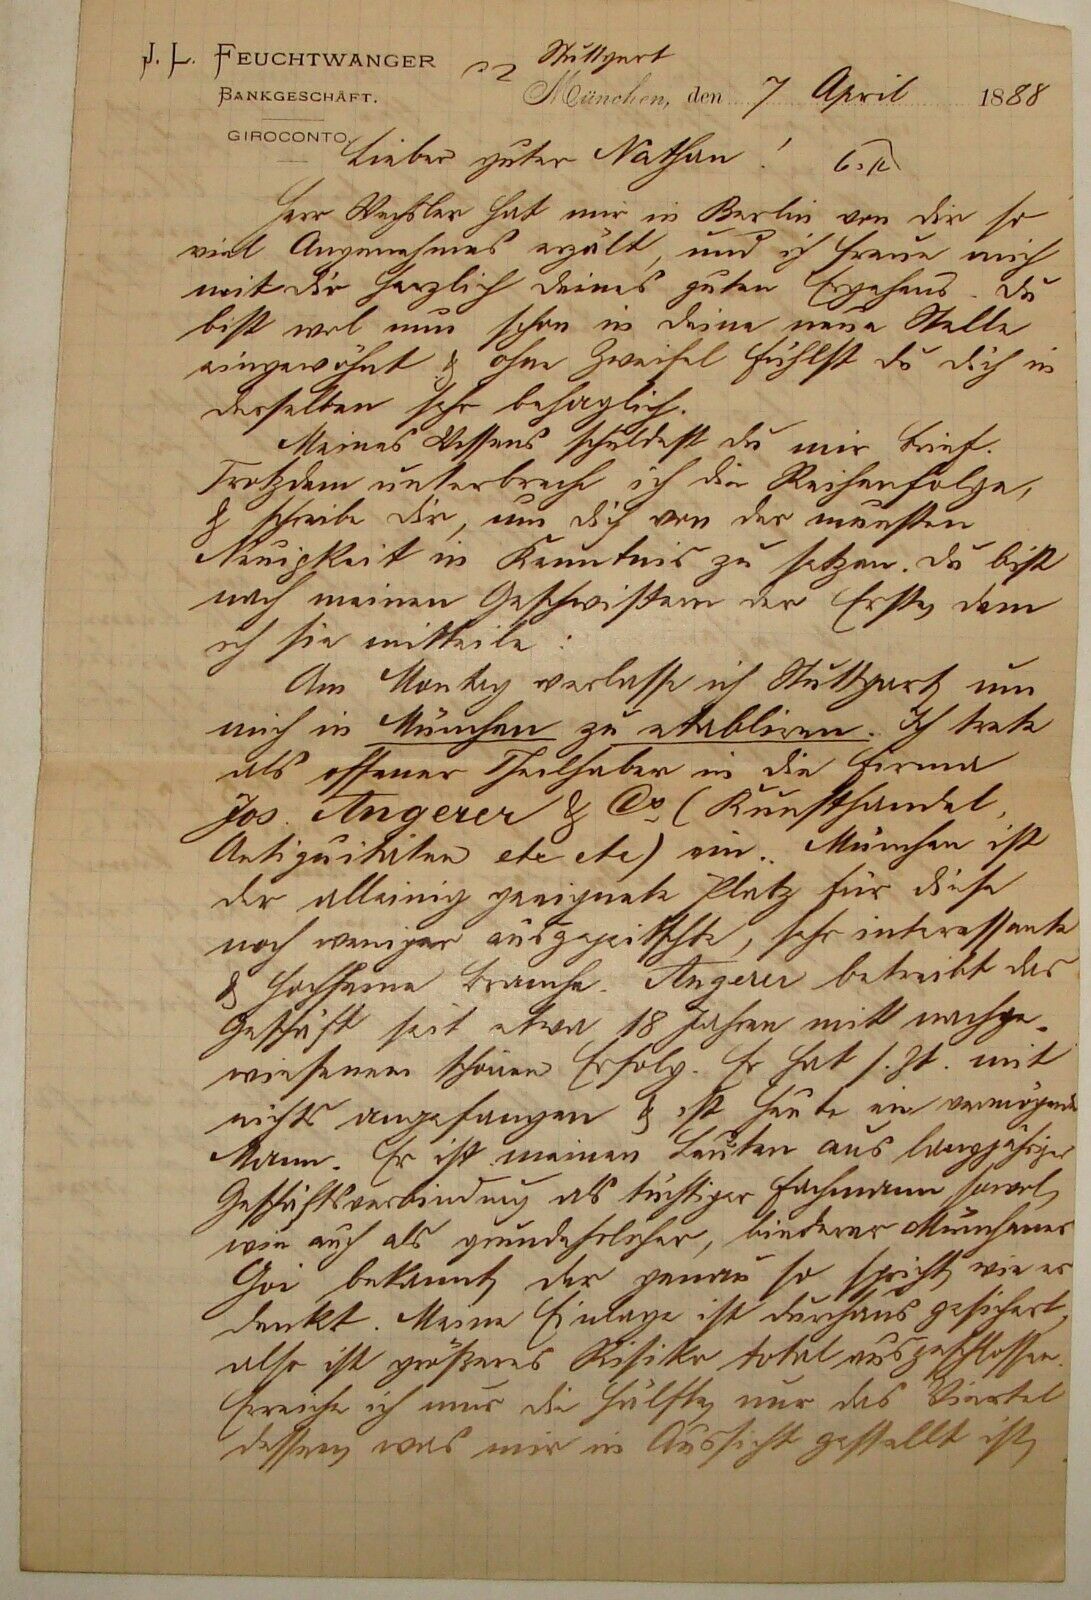 J. L. FEUCHTWANGER
BANKGESCHÄFT.
GIROCONTO.
Stuttgart
München, den 7 April 1888
Lieber guter Nathan!
Herr Wechsler hat mir in Berlin von dir so
viel Angenehmes erzält, und ich freue mich
mit dir herzlich deines guten Ergehens. Du
bist wol nun schon in deine neue Stelle
eingewöhnt & ohne Zweifel fühlst du dich in
derselben sehr behaglich.
Meines Wissens schuldest du mir Brief.
Trotzdem unterbreche ich die Reihenfolge,
& schreibe dir, um dich von der neuesten
Neuigkeit in Kenntnis zu setzen. Du bist
nach meinen Geschwistern der Erste, dem
ich sie mitteile:
Am Montag verlasse ich Stuttgart, um
mich in München zu etabliren. Ich trete
als offener Theilhaber in die Firma
Jos. Angerer & Co (Kunsthandel,
Antiquitäten etc etc) ein. München ist
der alleinig geeignete Platz für diese
noch weniger ausgepeitschte, sehr interessante
& hochfeine Branche. Angerer betreibt das
Geschäft seit etwa 18 Jahren mitt nachge-
wiesenem schönen Erfolg. Er hat s. Zt. mit
nichts angefangen & ist heute ein vermögender
Mann. Er ist meinen Leuten aus langjähriger
Geschäftsverbindung als tüchtiger Fachmann sowol,
wie auch als grundehrlicher, biederer Münchener
Goi bekannt, der genau so spricht, wie er
denkt. Meine Einlage ist durchaus gesichert,
also ist größeres Risiko total ausgeschlossen.
Erreiche ich nur die Hälfte, nur das Viertel
dessen, was mir in Aussicht gestellt ist,